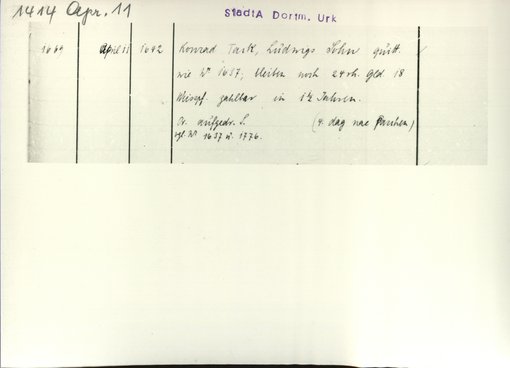 1414 Apr. 11
StadtA Dortm. Urk
1664 April 11 1642 Konrad Tark, Ludwigs Sohn quitt.
wie Nr 1657; bleiben noch 24 rh. Gld 18
zahlbar in 1½ Jahren.
Or. aufgedr. S. (4. dag nae Paschen)
vgl. Nr 1657 u. 1776.